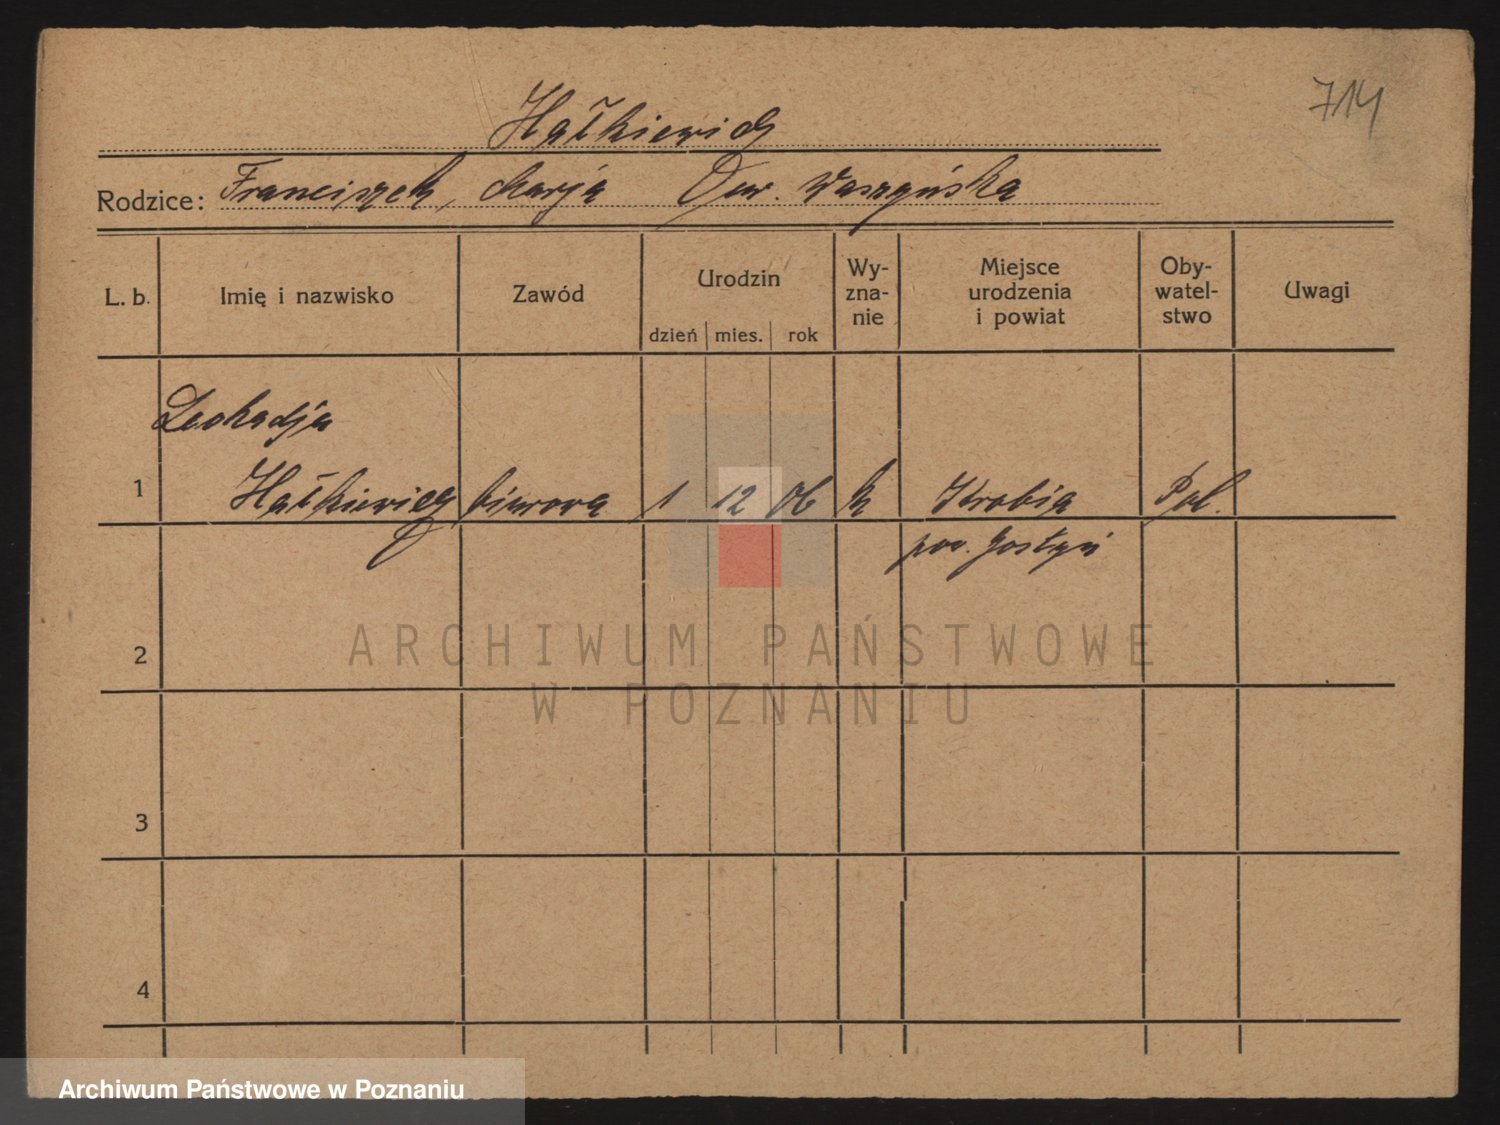 714
Hałkiewicz
Rodzice: Franciszek, Marja Dw. Waszyńska
L. b.
Imię i nazwisko
Zawód
Urodzin
dzień mies. rok
Wy-
zna-
nie
Miejsce
urodzenia
i powiat
Oby-
watel-
stwo
Uwagi
Leokadja
1 Hałkiewicz biurowa 1 12 06 k Krobia Pol.
pow. Gostyń
2
3
4
ARCHIWUM PAŃSTWOWE
W POZNANIU
Archiwum Państwowe w Poznaniu